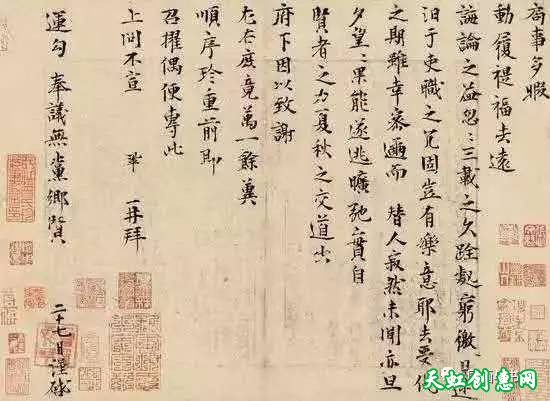 局事多暇
動履禔福去遠
誨論之益忽〻三載之久跧處窮徼日迷
汩于吏職之冗固豈有樂意耶去受代
之期雖幸密邇而 替人寂然未聞亦旦
夕望〻果能遂逃曠弛實自
賢者之力夏秋之交道出
府下因以致謝
左右庶竟萬一餘冀
順序珍重前即
召擢偶便專此
上問不宣 鞏 再拜
運勾奉議無黨鄉賢
二十七日謹啟
天虹创意网